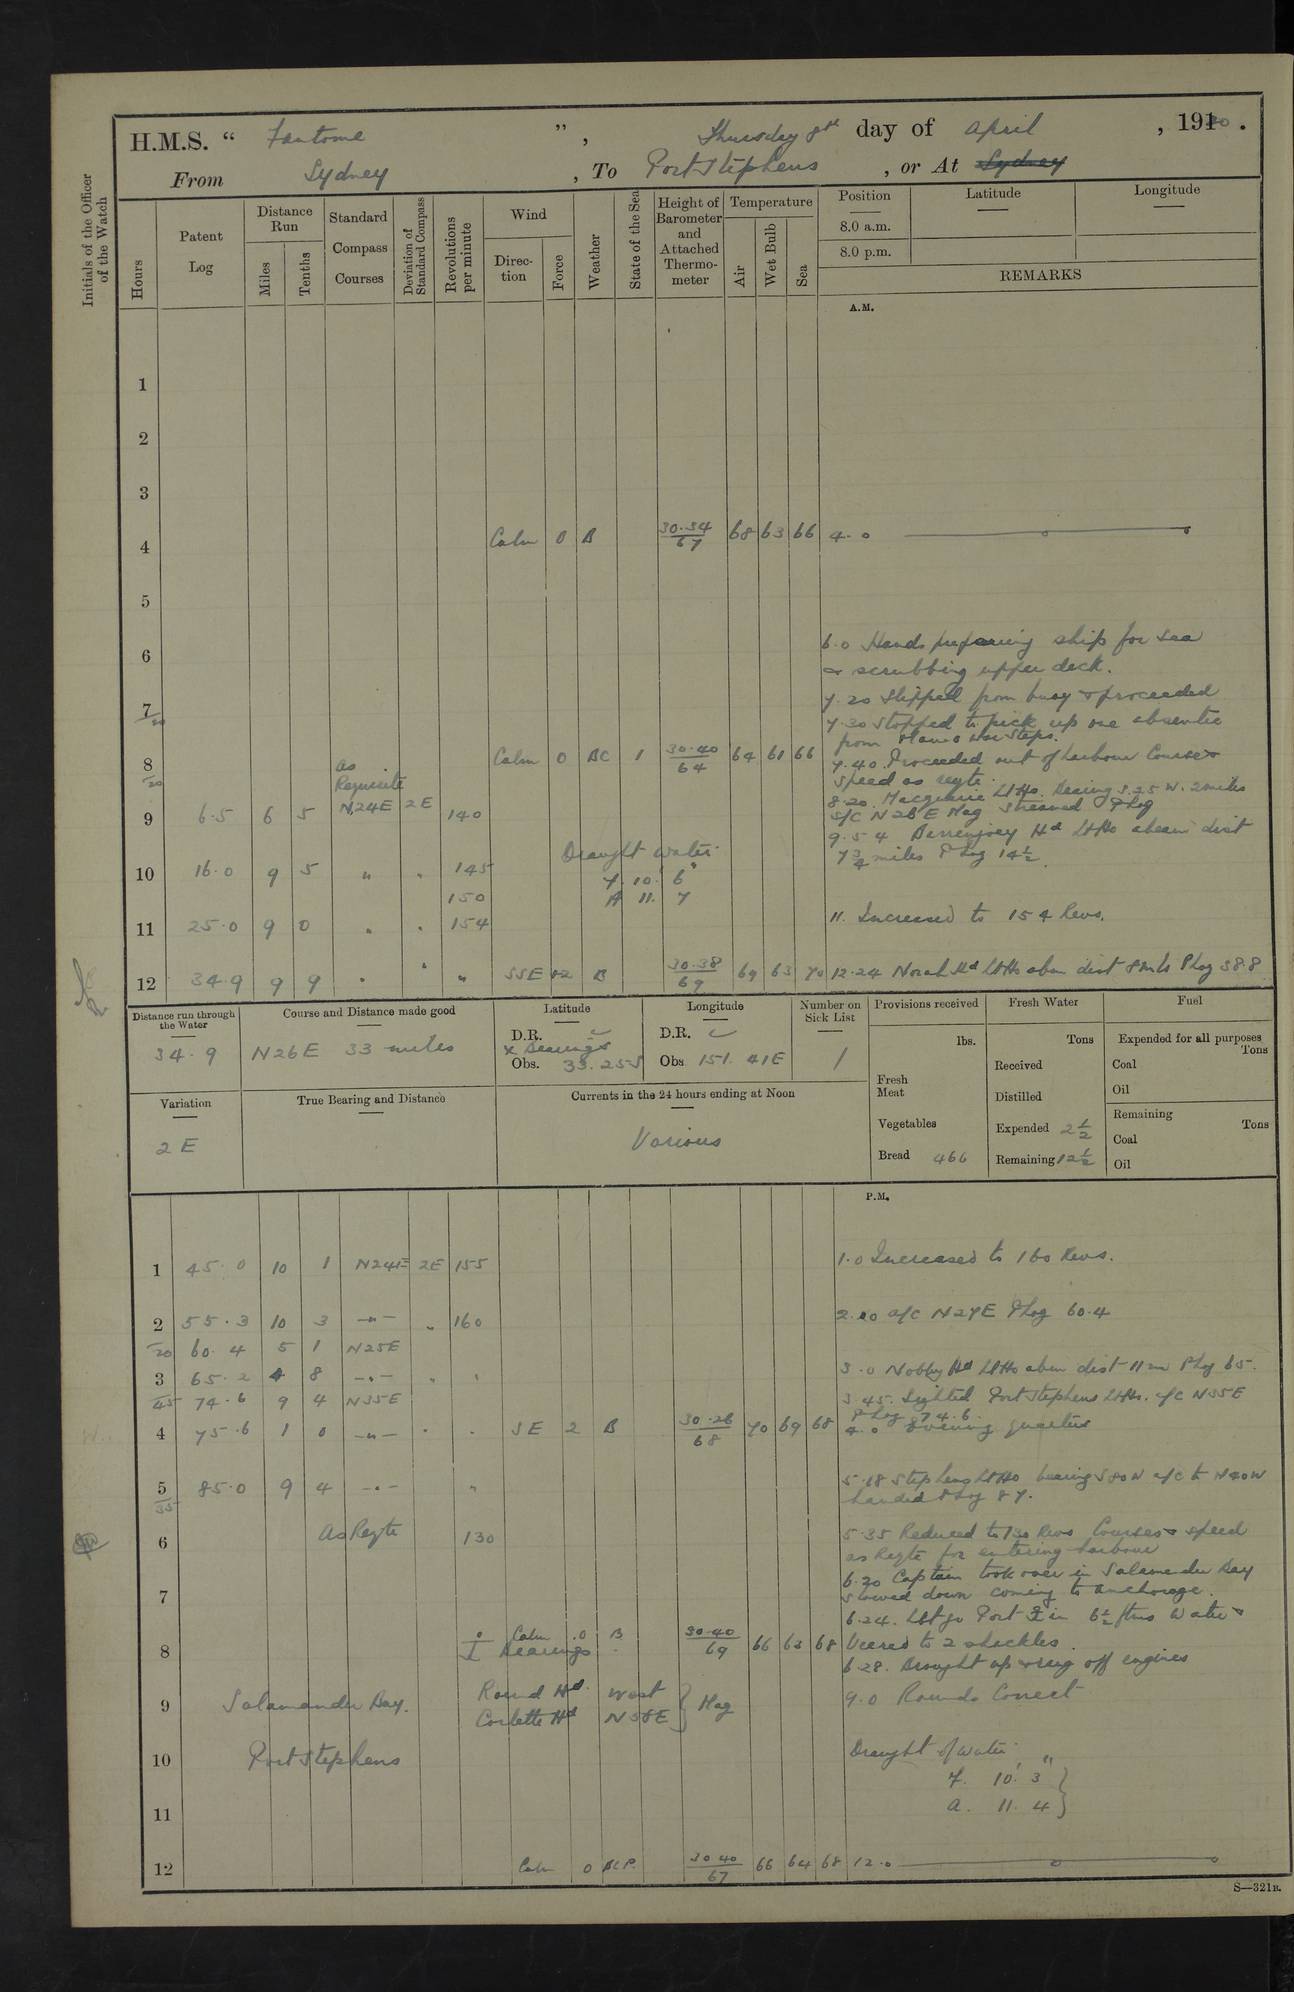 H.M.S. " Fantome ", Thursday 8th day of April, 1920.
From Sydney, To Port Stephens, or At Sydney
Initials of the Officer of the Watch
Hours
Patent Log
Distance Run
Miles
Tenths
Standard Compass Courses
Deviation of Standard Compass
Revolutions per minute
Wind
Direction
Force
Weather
State of the Sea
Height of Barometer and Attached Thermometer
Temperature
Air
Wet Bulb
Sea
Position Latitude Longitude
8.0 a.m.
8.0 p.m.
REMARKS
A.M.
1
2
3
4 Calm 0 B 30.34/67 68 63 66 4.0
5
6 6.0 Hands preparing ship for sea
& scrubbing upper deck.
7/20 7.20 Slipped from buoy & proceeded
7.30 Stopped to pick up one absentee
from Man o War Steps.
8/20 as Requisite Calm 0 BC 1 30.40/64 64 61 66 7.40. Proceeded out of harbour Course &
speed as reqte.
8.20. Macquarie Lt Ho. Bearing S.25 W. 2 miles
9 6.5 6 5 N24E 2E 140 S/C N26E Mag Streamed P Log
9.54 Barrenjoey Hd Lt Ho abeam dist
7 3/4 miles P Log 14 1/2.
10 16.0 9 5 " " 145 Draught Water
F. 10' 6"
150 A 11. 7
11 25.0 9 0 " " 154 11. Increased to 154 Revs.
12 34.9 9 9 " " " SSE 1-2 B 30.38/69 69 63 70 12.24 Norah Hd Lt Ho abm dist 8 mls P Log 38.8
Distance run through the Water
34.9
Course and Distance made good
N26E 33 miles
Latitude
D.R.
x Bearings
Obs. 33.25S
Longitude
D.R.
Obs. 151. 41E
Number on Sick List
1
Provisions received
lbs.
Fresh Meat
Vegetables
Bread 466
Fresh Water
Tons
Received
Distilled
Expended 2 1/2
Remaining 12 1/2
Fuel
Expended for all purposes
Tons
Coal
Oil
Remaining
Tons
Coal
Oil
Variation
2 E
True Bearing and Distance
Currents in the 24 hours ending at Noon
Various
P.M.
1 45.0 10 1 N24E 2E 155 1.0 Increased to 160 Revs.
2 55.3 10 3 -"- " 160 2.20 a/c N27E P Log 60.4
/20 60.4 5 1 N25E
3 65.2 4 8 -"- " " 3.0 Nobby Hd Lt Ho abm dist 11 m P Log 65.
/45 74.6 9 4 N35E 3.45. Sighted Port Stephens Lt Ho. a/c N35E
P Log 74.6.
4 75.6 1 0 -"- " " SE 2 B 30.26/68 70 69 68 4.0 Evening quarters
5/35 85.0 9 4 -"- " 5.18 Stephens Lt Ho bearing S80W a/c to N40W
handed P Log 87.
6 As Reqte 130 5.35 Reduced to 130 Revs Courses & speed
as Reqte for entering harbour
6.20 Captain took over in Salamander Bay
7 Slowed down coming to anchorage.
6.24. Let go Port ⚓ in 6 1/2 fms Water &
8 Calm 0 B 30.40/69 66 63 68 Veered to 2 shackles.
⚓ Bearings
6.28. Brought up & rung off engines
9 Salamander Bay. Round Hd. West
Corlette Hd N58E } Mag
9.0 Rounds Correct
10 Port Stephens Draught of water
F. 10' 3"
11 A. 11. 4 }
12 Calm 0 BCP. 30.40/67 66 64 68 12.0
S—321B.